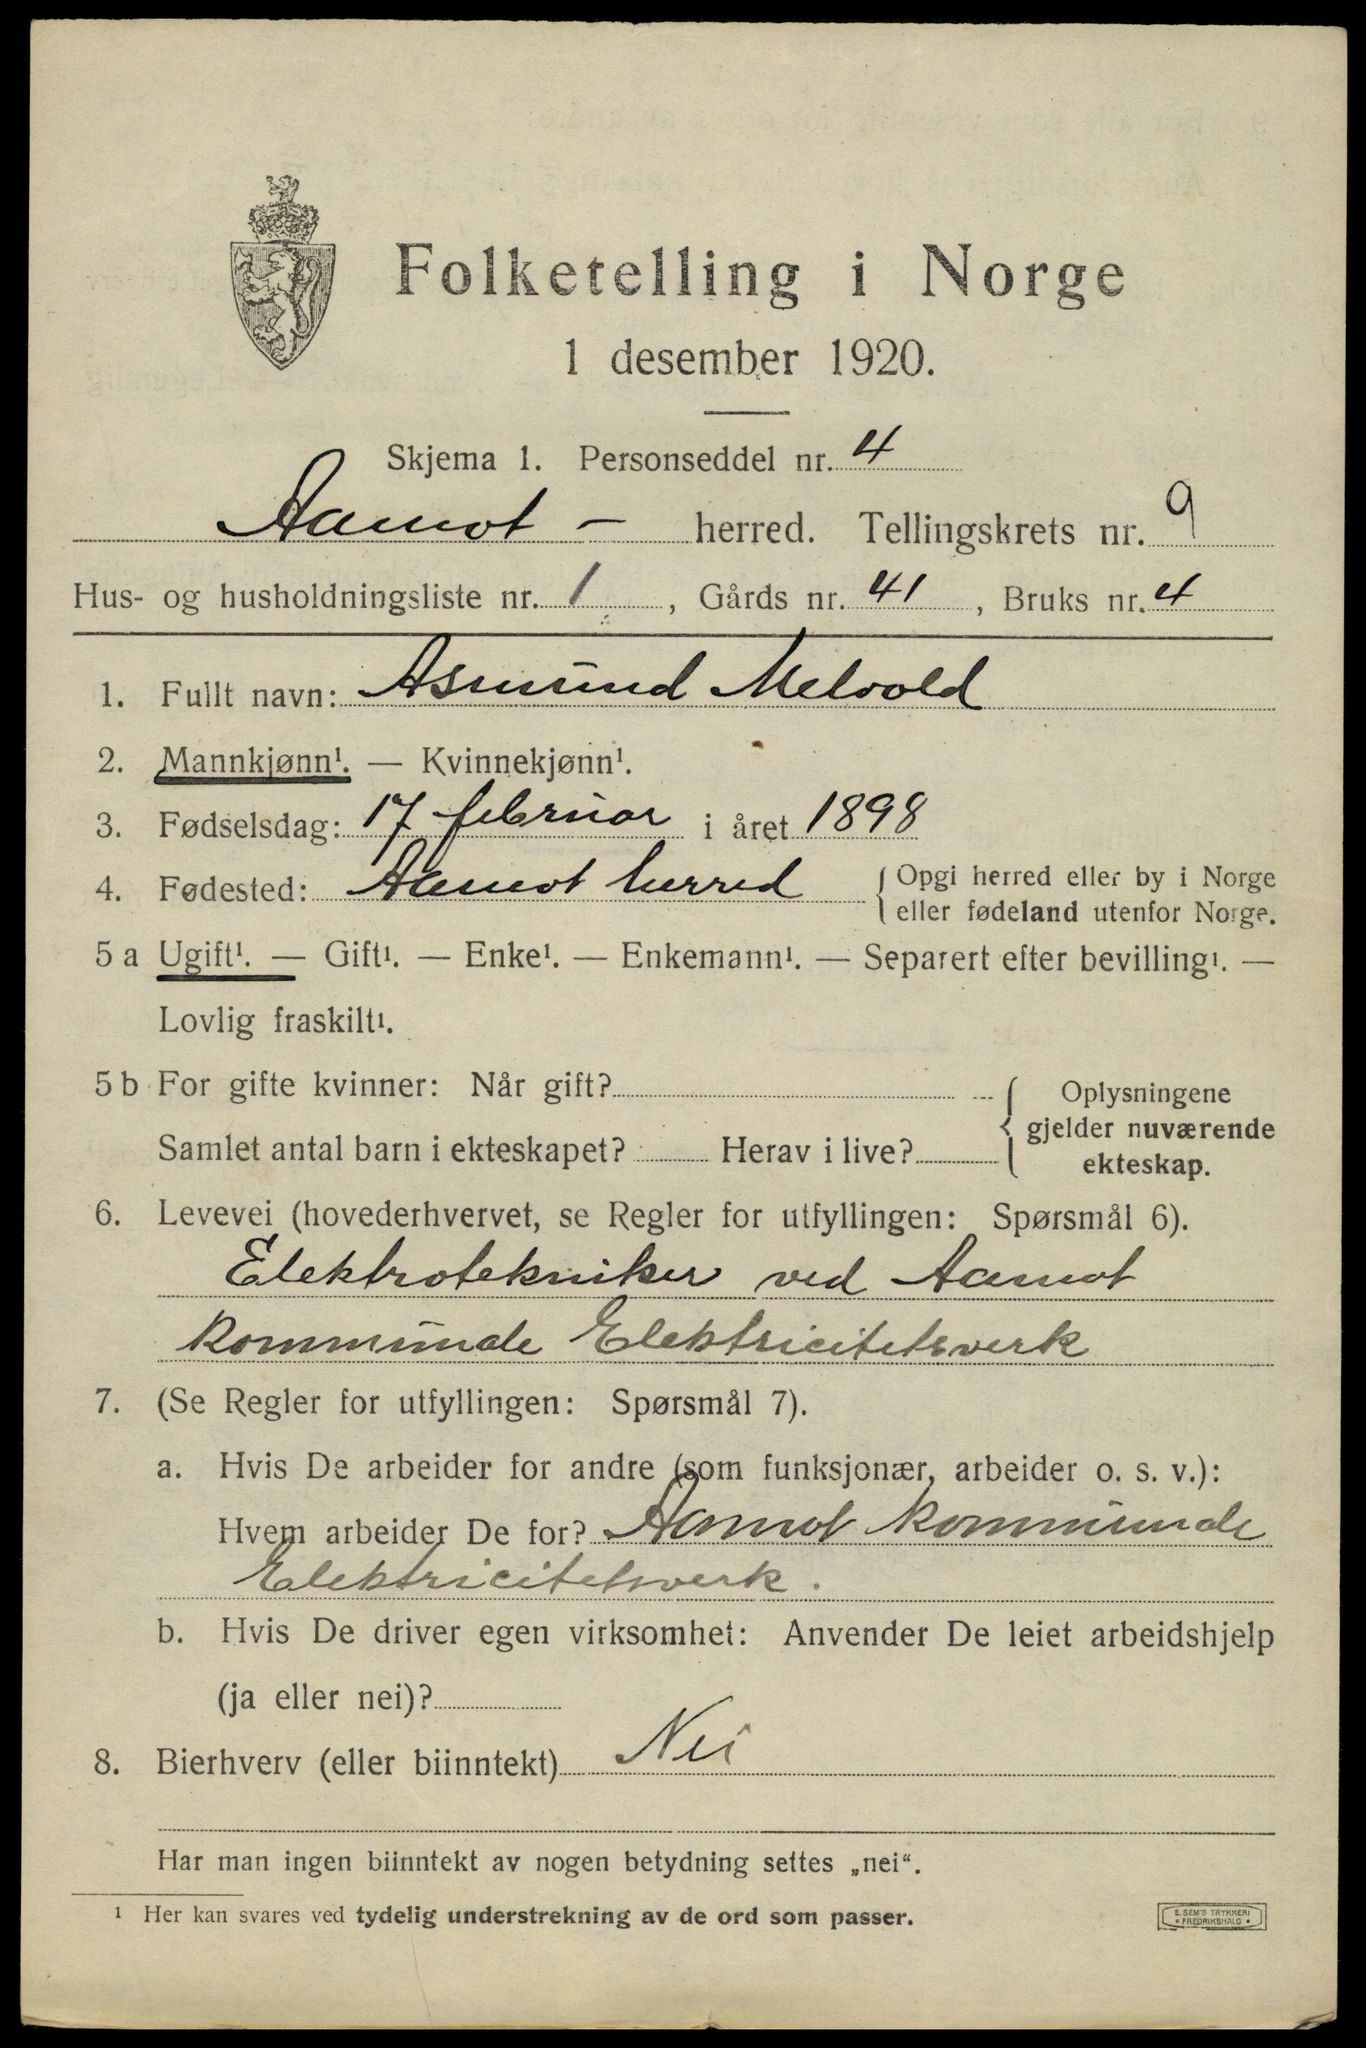 Folketelling i Norge
1 desember 1920.
Skjema 1. Personseddel nr. 4
Aamot - herred. Tellingskrets nr. 9
Hus- og husholdningsliste nr. 1, Gårds nr. 41, Bruks nr. 4
1. Fullt navn: Asmund Melvold
2. Mannkjønn¹. — Kvinnekjønn¹.
3. Fødselsdag: 17 februar i året 1898
4. Fødested: Aamot herred { Opgi herred eller by i Norge
eller fødeland utenfor Norge.
5 a Ugift¹. — Gift¹. — Enke¹. — Enkemann¹. — Separert efter bevilling¹. —
Lovlig fraskilt¹.
5 b For gifte kvinner: Når gift? { Oplysningene
gjelder nuværende
Samlet antal barn i ekteskapet? Herav i live? ekteskap.
6. Levevei (hovederhvervet, se Regler for utfyllingen: Spørsmål 6).
Elektrotekniker ved Aamot
kommunde Elektricitetsverk
7. (Se Regler for utfyllingen: Spørsmål 7).
a. Hvis De arbeider for andre (som funksjonær, arbeider o. s. v.):
Hvem arbeider De for? Aamot kommunde
Elektricitetsverk.
b. Hvis De driver egen virksomhet: Anvender De leiet arbeidshjelp
(ja eller nei)?
8. Bierhverv (eller biinntekt) Nei
Har man ingen biinntekt av nogen betydning settes „nei“.
¹ Her kan svares ved tydelig understrekning av de ord som passer.
E. SEM'S TRYKKERI
• FREDRIKSHALD •